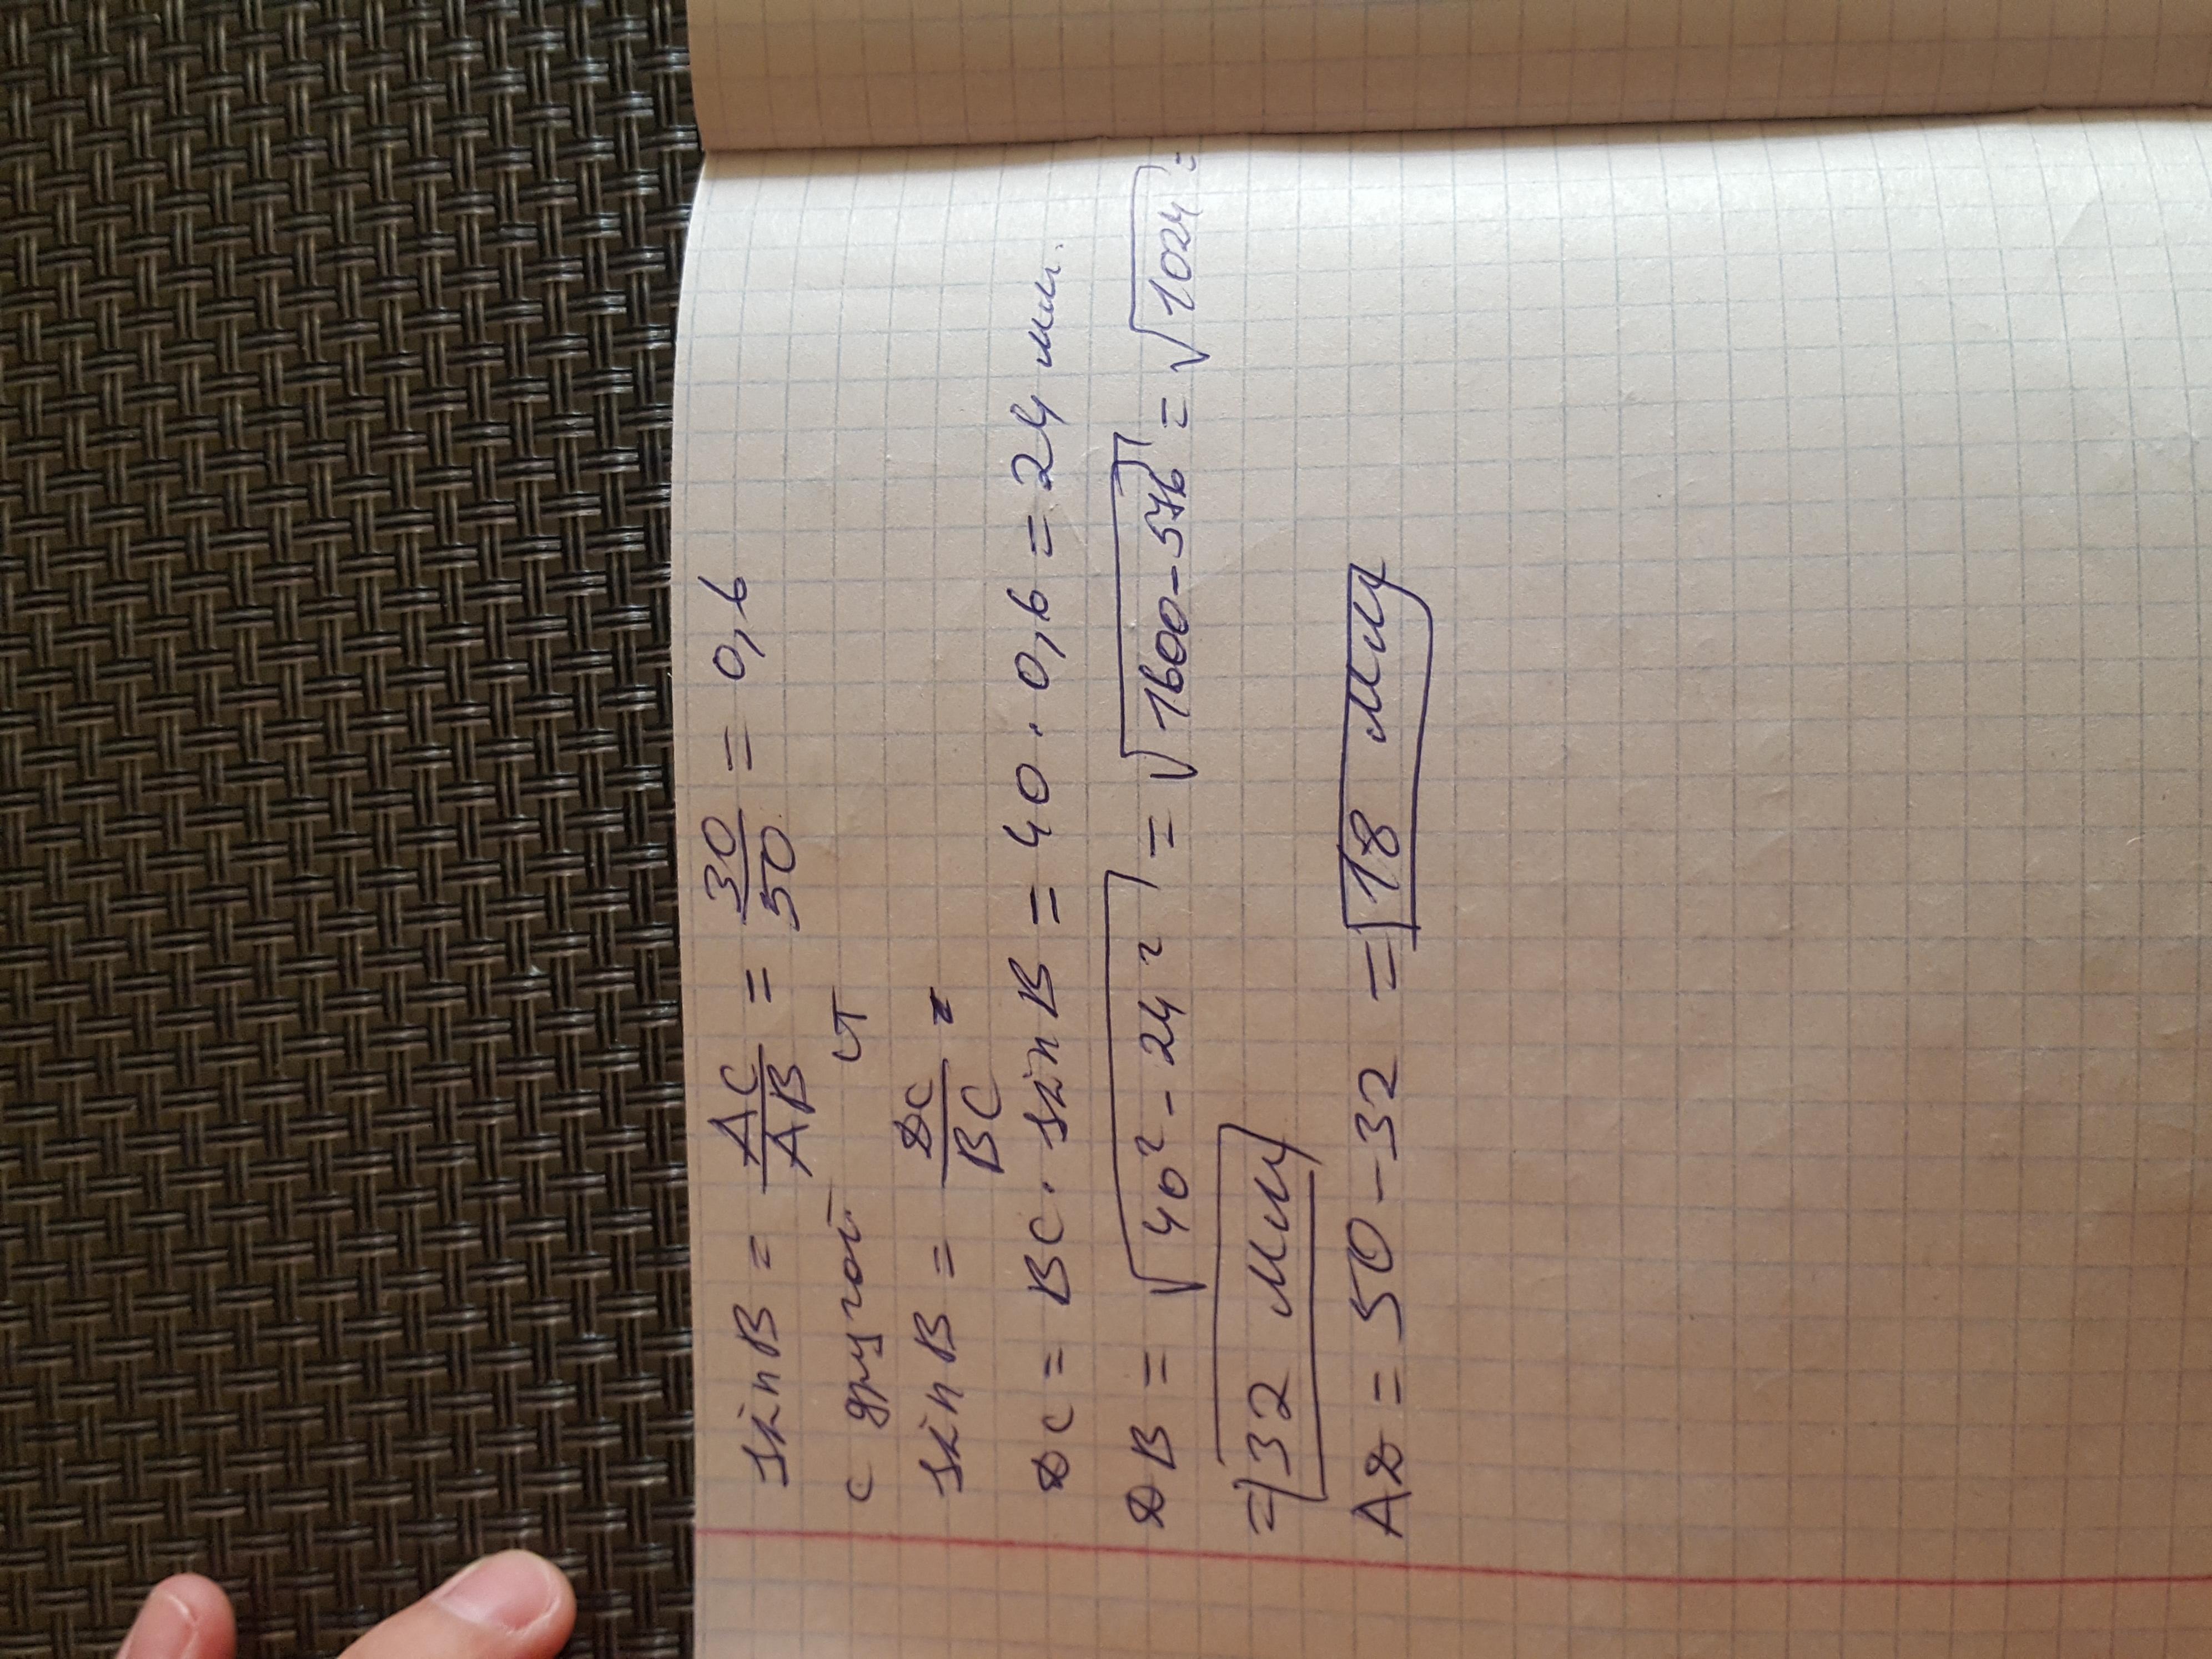 sin B = AC/AB = 30/50 = 0,6
с другой ст
sin B = DC/BC =
DC = BC · sin B = 40 · 0,6 = 24 мм.
DB = √40² - 24² = √1600 - 576 = √1024 =
= 32 мм
AD = 50 - 32 = 18 мм